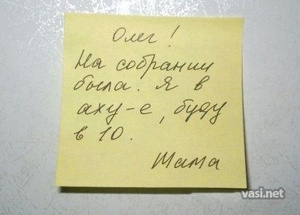 Олег!
На собрании
была. Я в
аху-е, буду
в 10.
Мама
vasi.net